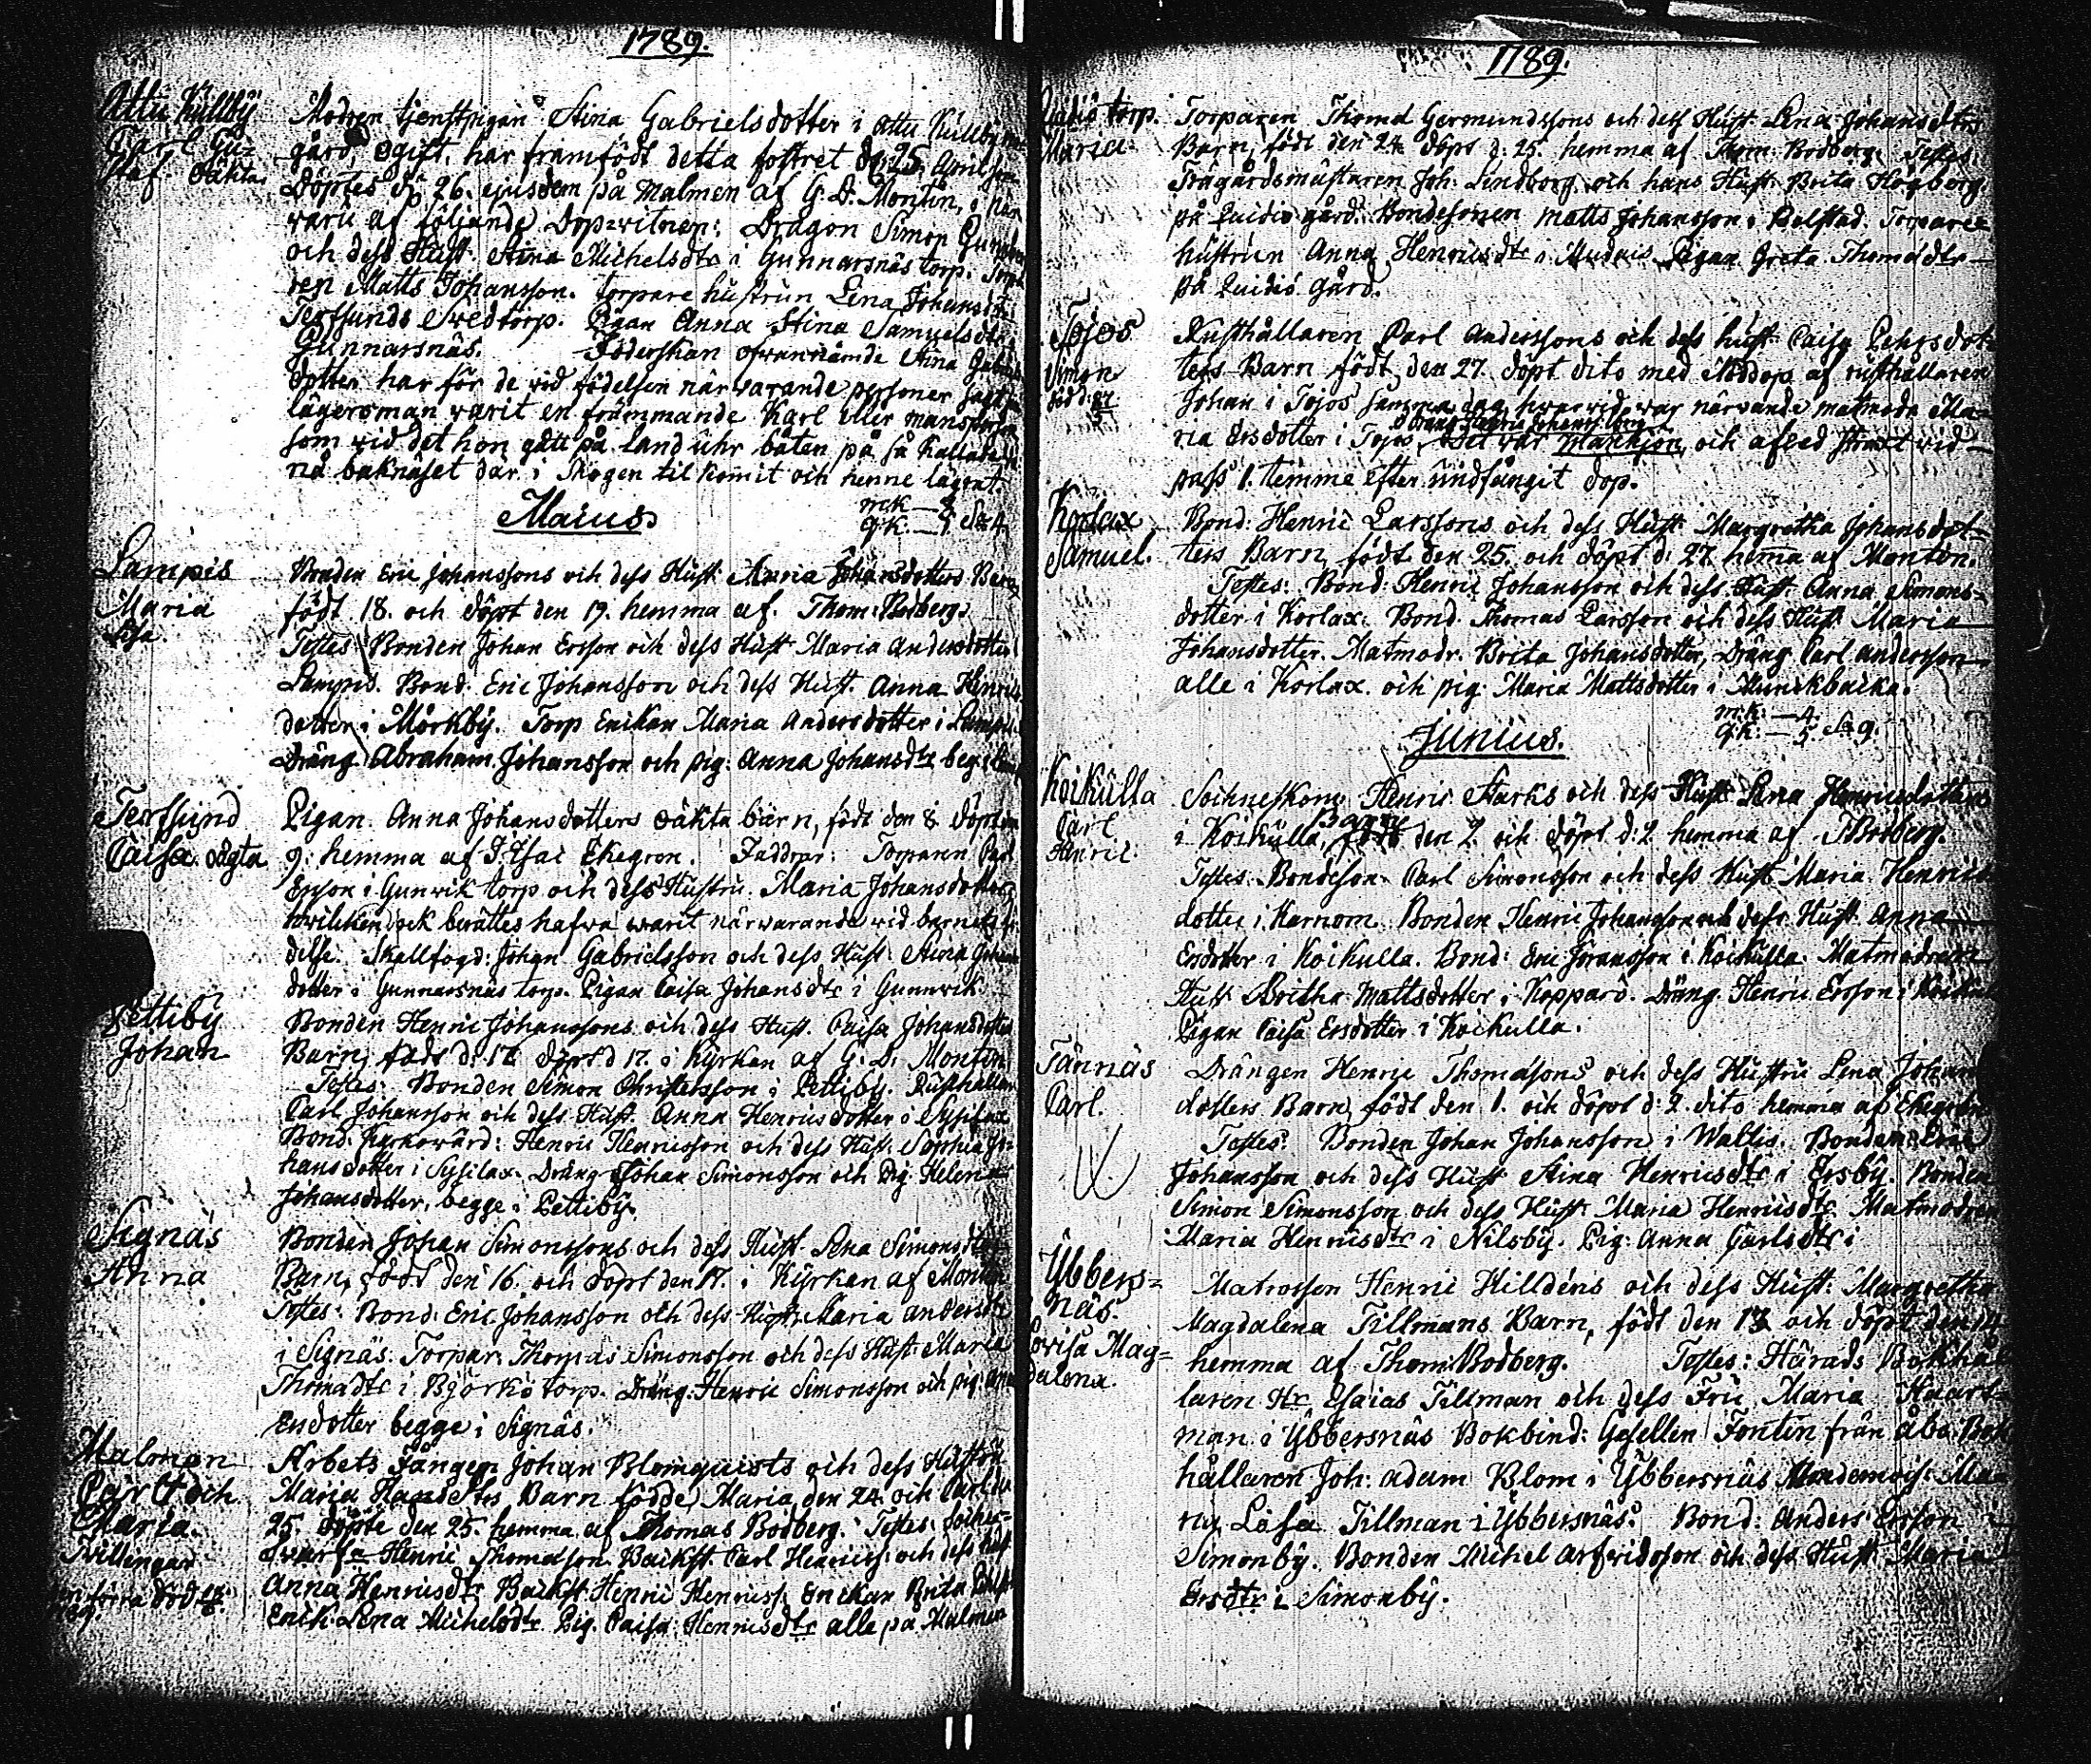 1789.
Attu Kullby
Carl Gu-
staf. oäkta
Modren tjenstpigan Stina Gabrielsdotter i Attu Kullby
gård, ogift, har framfödt detta fostret d: 25 April
Döptes d: 26. ejusdem på Malmen af G. D: Montin, i när
varu af följande Dop-witnen: Dragon Simon
och dess Hust. Stina Michelsdtr i Gunnarsnäs torp.
ren Matts Johansson. torpare hustrun Lena Johansdtr
Terfsunds Swedtorp. Pigan Anna Stina Samuelsdtr
Gunnarsnäs. Föderskan ofvannämde Stina
dotter har för de vid födelsen närvarande personer
lägersman varit en främmande Karl eller
som vid det hon gått på land uhr båten på så kallade
näset där i skogen til komit och henne lägrat.
mk — 3
qk. — 1. Sa 4
Maius
Lampis
Maria
Lisa
Bonden Eric Johanssons och dess Hust. Maria Johansdotters Barn
födt 18. och döpt den 19. hemma af. Thom: Bodberg.
Testes Bonden Johan Ersson och dess Hust Maria Andersdotter
Lampis. Bond. Eric Johansson och dess Hust. Anna Henrics
dotter i Mörkby. Torp Enkan Maria Andersdotter i Lampis
Dräng Abraham Johansson och pig: Anna Johansdtr beg:
Terfsund
Caisa. oägta
Pigan. Anna Johansdotters oäkta barn, födt den 8 döpt
9: hemma af J: Esai Ekegren. Faddrar: Torparen Carl
Ersson i Gunwik torp och dess Hustru Maria Johansdotter
hvilken ock berättes hafva warit närvarande vid barnets
delse. Skallfogd: Johan Gabrielsson och dess Hust: Stina Johans
dotter i Gunnarsnäs torp. Pigan Caisa Johansdtr i Gunnwik
Pettiby
Johan
Bonden Henric Johanssons och dess Hust. Caisa Johansdotters
Barn, födt d: 17 döpt d 17. i Kyrkan af G. D. Montin
Testes: Bonden Simon Christersson i Pettiby. Rusthållar
Carl Johansson och dess Hust. Anna Henricsdotter i Sysilax
Bond: Kyrkowärd: Henric Henricsson och dess Hust. Sophia Jo-
hansdotter i Sysilax. Dräng Johan Simonsson och Pig. Helena
Johansdotter, begge i Pettiby.
Signäs
Anna
Bonden Johan Simonssons och dess Hust. Lena Simonsdtr
Barn, födt den 16. och döpt den 17. i Kyrkan af Montin
Testes: Bond: Eric Johansson och dess Hust. Maria Andersdtr
i Signäs. Torpar: Thomas Simonsson och dess Hust Maria
Thomadtr i Björkö torp. Dräng: Henric Simonsson och pig: Anna
Ersdotter begge i Signäs.
Malmen
Carl och
Maria.
Tvillingar
förra död
Arbets Fången Johan Blomquists och dess Hustru
Maria Hansdtrs Barn födde, Maria den 24 och Carl den
25. döpte den 25. hemma af Thomas Bodberg. Testes:
Henric Thomasson Backst. Carl Henrics: och dess Hust
Anna Henricsdtr Backst Henric Henricss. Enckan Brita
Enck: Lena Michelsdtr. Pig. Caisa Henricsdtr alle på Malmen
1789.
Quidiö torp.
Maria
Torparen Thomas Germundssons och dess Hust. Lena Johansdtrs
Barn, födt den 24 döpt d: 25. hemma af Thom: Bodberg. Testes:
Trägårdsmästaren Joh: Lindborg och hans Hust. Brita Högberg
på Quidio gård. Bondesonen Matts Johansson i Bolstad. Torpare
hustrun Anna Henricsdtr i Mudais Pigan Greta Thomadtr
på Quidiö gård.
Tojos
Simon
död d: 27/5
Rusthållaren Carl Anderssons och dess hust. Caisa Pehrsdot-
ters Barn födt den 27. döpt dito med Nöddop af rusthållaren
Johan i Tojos samma dag, hvarvid war närvande matmodr Ma-
ria Ersdotter i Tojos, dräng Henric Johanss: ibm
Det var Mankjön, och afled straxt vid
pass 1. timme efter undfångit dop.
Korlax
Samuel.
Bond: Henric Larssons och dess Hust. Margretha Johansdot-
ters Barn, födt den 25. och döpt d: 27 hemma af Montin.
Testes: Bond: Henric Johansson och dess Hust. Anna Simons-
dotter i Korlax. Bond. Thomas Larsson och dess Hust. Maria
Johansdotter. Matmodr. Brita Johansdotter, Dräng Carl Andersson
alle i Korlax. och pig: Maria Mattsdotter i Munckbacka.
mk: — 4.
qk: — 5. Sa 9.
Junius.
Koikulla
Carl
Henric.
Sochneskom: Henric Starks och dess Hust Lena Henricsdotters
i Koikulla, Barn födt den 2. och döpt d: 2 hemma af TBodberg.
Testes. Bondeson. Carl Simonsson och dess Hust Maria Henrics
dotter i Karnom. Bonden Henric Johansson och dess Hust Anna
Ersdotter i Koikulla. Bond: Eric Joransson i Koikulla. Matmodren
Hust Britha Mattsdotter i Koppard. Dräng Henric Ersson i Koikulla
Pigan Caisa Ersdotter i Koikulla.
Tännäs
Carl.
Drängen Henric Thomassons och dess Hustru Lena Johans
dotters Barn, födt den 1. och döpt d: 2. dito hemma af Ekegren
Testes: Bonden Johan Johansson i Wallis. Bonden Eric
Johansson och dess Hust Stina Henricsdtr i Ersby. Bonden
Simon Simonsson och dess Hust: Maria Henricsdtr. Matmodren
Maria Henricsdtr i Nilsby. Pig: Anna Carlsdtr i
Ybbers=
näs.
Lovisa Mag=
dalena.
Matrossen Henric Hilldéns och dess Hust. Margretha
Magdalena Tillmans Barn, födt den 13 och döpt den 14
hemma af Thom: Bodberg. Testes: Härads Bokhål
laren Hr Esaias Tillman och dess Fru Maria Haart-
man i Ybbersnäs Bokbind: Gesellen Fontin från Åbo. Bok
hållaren Joh: Adam Blom i Ybbersnäs Mademois: Ma-
ria Lisa Tillman i Ybbersnäs. Bond: Anders Ersson i
Simonby. Bonden Michel Arfvidsson och dess Hust Maria
Ersdtr i Simonby.